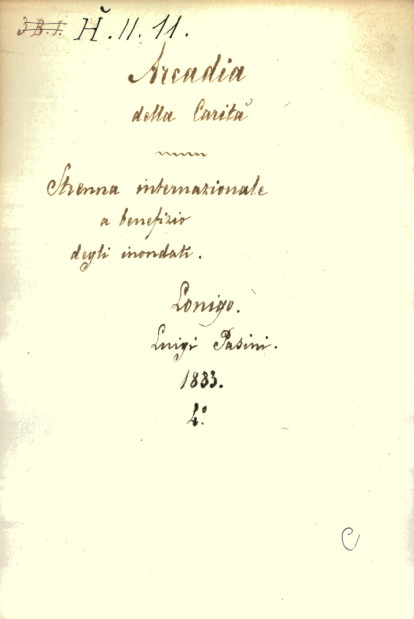 3 B. 1. Ȟ. II. 11.
Arcadia
della Carità
Strenna internazionale
a benefizio
degli inondati.
Lonigo.
Luigi Pasini.
1883.
4°
C